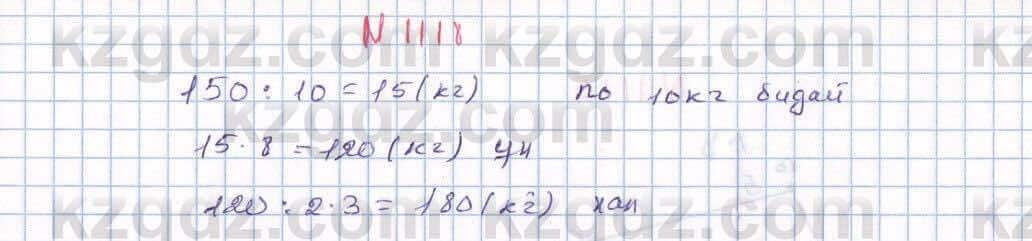 N 1118
150 : 10 = 15 (кг) по 10 кг бидай
15 · 8 = 120 (кг) ун
120 : 2 · 3 = 180 (кг) нан
kzgdz.com kzgdz.com kzgdz.com
kzgdz.com kzgdz.com
kzgdz.com kzgdz.com kzgdz.com